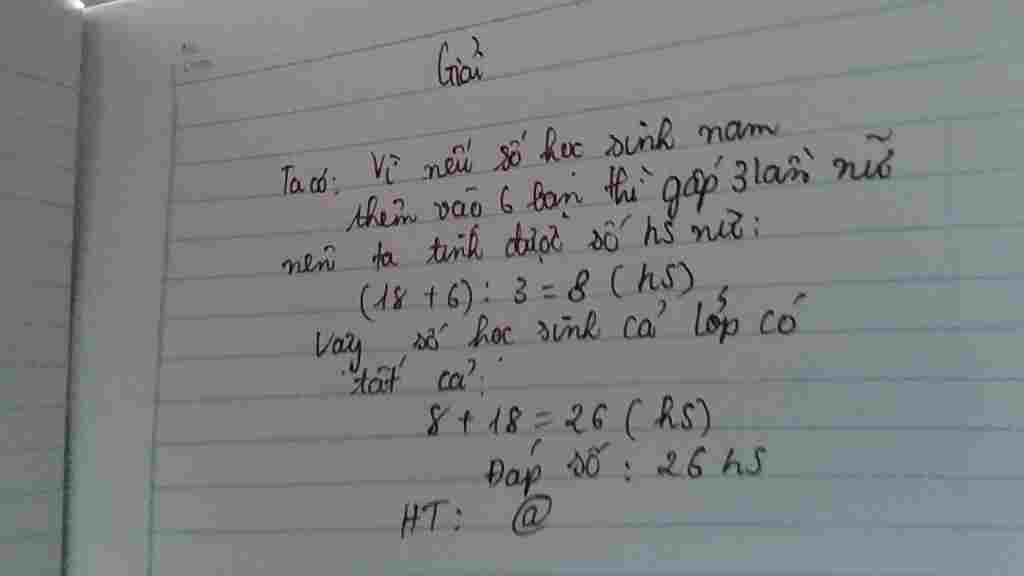 Giải
Ta có: Vì nếu số học sinh nam
thêm vào 6 bạn thì gấp 3 lần nữ
nên ta tính được số hs nữ:
(18 + 6) : 3 = 8 (hs)
Vậy số học sinh cả lớp có
tất cả:
8 + 18 = 26 (hs)
Đáp số : 26 hs
HT: @